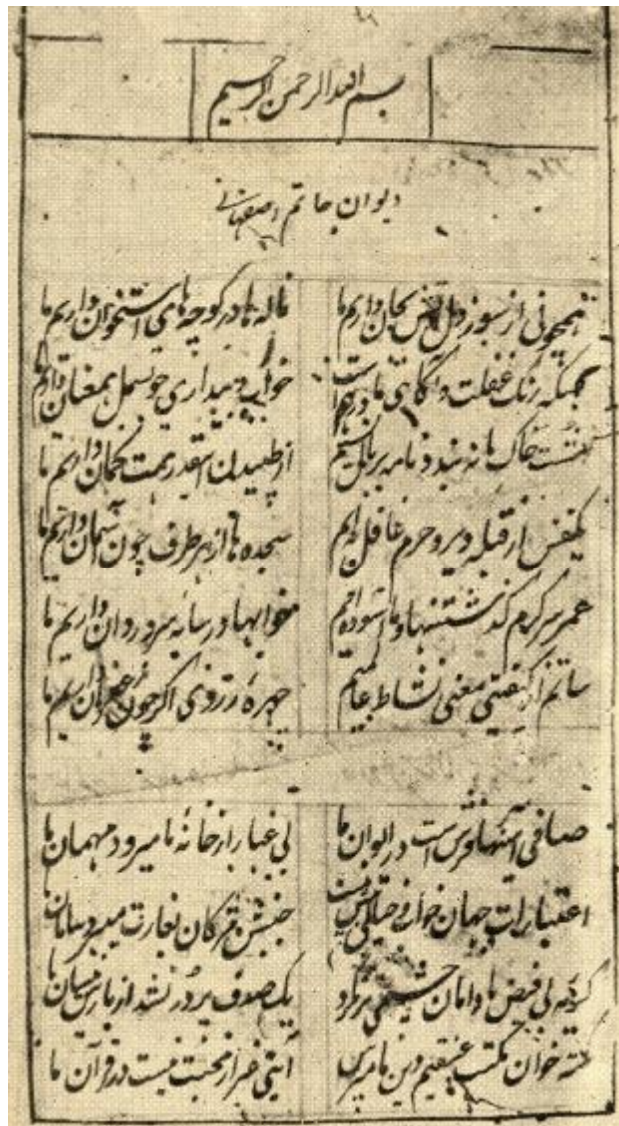 بسم الله الرحمن الرحیم
دیوان حاتم اصفهانی
همچو نی از سوز دل نفس بجان داریم ما
ناله ها در کوچه های استخوان داریم ما
بسکه رنک غفلت و آکاهی ما درهم است
خواب و بیداری چو بسمل همعنان داریم ما
مشت خاک ما نه بندد نامه بر بال نسیم
از طپیدن اینقدر همت کمان داریم ما
یکنفس از قبله دیر و حرم غافل نه ایم
سجده ها از هر طرف چون آسمان داریم ما
عمر سرکرم کذشتنها و ما آسوده ایم
خوابها در سایه سرو روان داریم ما
معنی نشاط عالمیم
چهره زردی اکر چون زعفران داریم ما
صافی آئینها فرش است در ایوان ما
بی غبار از خانه ما میرود مهمان ما
اعتبارات جهان خواب و خیالی بیش نیست
جنبش مژکان بغارت میبرد سامان ما
کریه بی فیض ما دامان چشمی پر نکرد
یک صدف پر در نشد از بارش نیسان ما
نکته خوان مکتب عشقیم دین ما مپرس
آیتی غیر از محبت نیست در قرآن ما